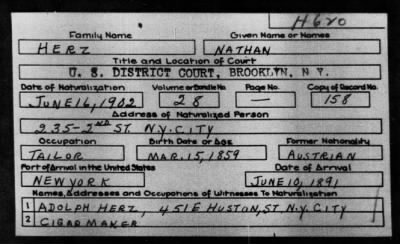 H620
Family Name Given Name or Names
HERZ NATHAN
Title and Location of Court
U. S. DISTRICT COURT, BROOKLYN, N. Y.
Date of Naturalization Volume or Bundle No. Page No. Copy of Record No.
JUNE 16, 1902 28 — 158
Address of Naturalized Person
235-2ND ST. N.Y. CITY
Occupation Birth Date or Age Former Nationality
TAILOR MAR. 15, 1859 AUSTRIAN
Port of Arrival in the United States Date of Arrival
NEW YORK JUNE 10, 1891
Names, Addresses and Occupations of Witnesses To Naturalization
1 ADOLPH HERZ, 451 E HUSTON, ST. N.Y. CITY
2 CIGAR MAKER